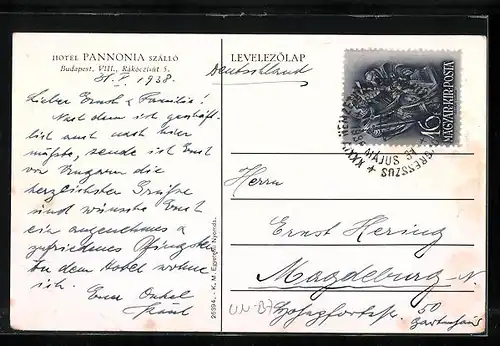 HOTEL PANNONIA SZÁLLÓ
Budapest, VIII., Rákóczi-út 5.
31. V. 1938.
Lieber Ernst & Familie!
Nach dem ich geschäft-
lich auch nach hier
mußte, sende ich Euch
von Ungarn die
herzlichsten Grüße
und wünsche Euch
ein angenehmes &
zufriedenes Pfingsten
In dem Hotel wohne
ich. Euer Onkel
Paul
26994.- K. M. Egyetemi Nyomda.
LEVELEZŐLAP
Deutschland
16
MAGYAR·KIR·POSTA
MÁJUS
Herrn
Ernst Hering
Magdeburg-N.
50
Gartenhaus
UN-B7